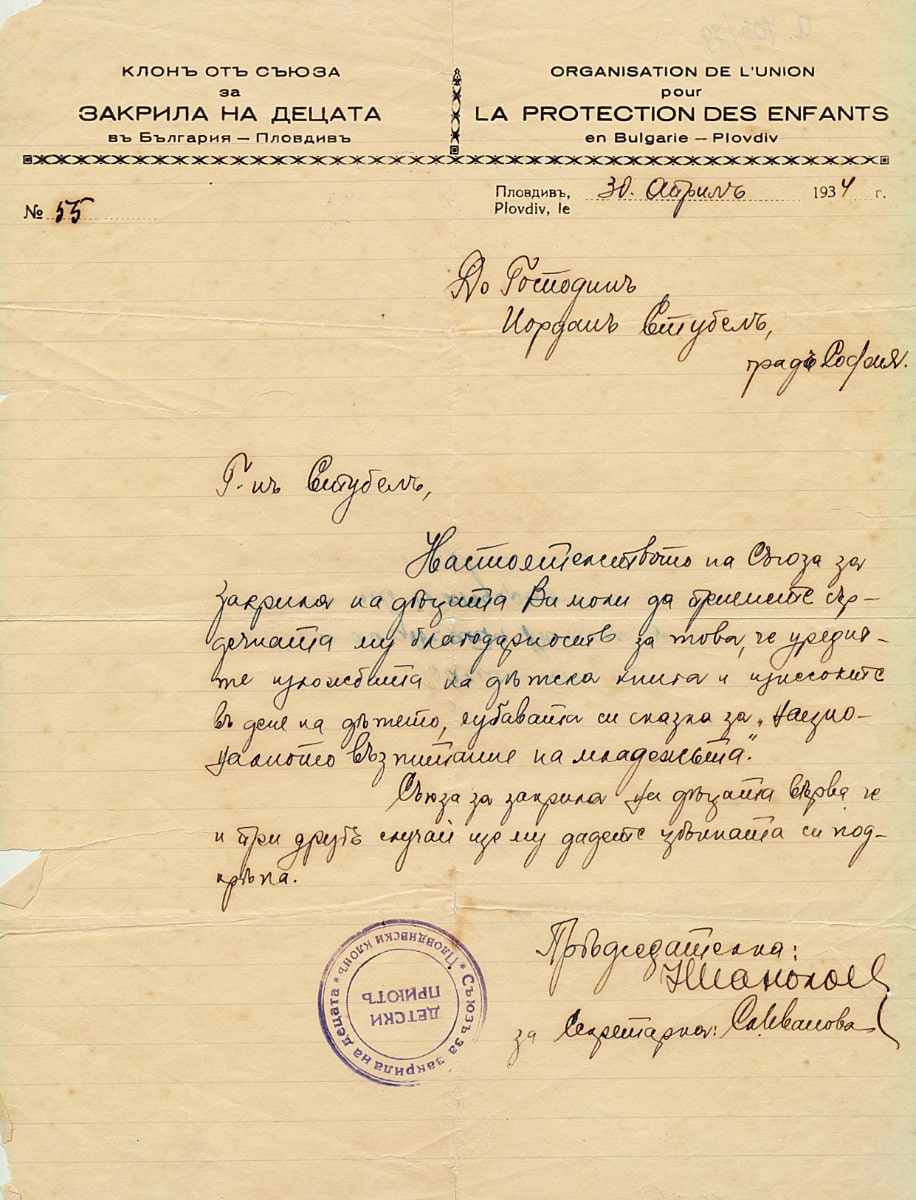 КЛОНЪ ОТЪ СЪЮЗА
за
ЗАКРИЛА НА ДЕЦАТА
въ България — Пловдивъ
ORGANISATION DE L'UNION
pour
LA PROTECTION DES ENFANTS
en Bulgarie — Plovdiv
№ 55
Пловдивъ, 30. Априлъ 1934 г.
Plovdiv, le
До Господинъ
Иорданъ Стубелъ,
градъ София.
Г-нъ Стубелъ,
Настоятелството на Съюза за
закрила на дѣцата Ви моли да приемете сър-
дечната му благодарность за това, че уредих-
те изложбата на дѣтска книга и изнесохте
въ деня на дѣтето, хубавата си сказка за „Нацио-
налното възпитание на младежьта."
Съюза за закрила на дѣцата вѣрва че
и при другъ случай ще му дадете цѣнната си под-
крѣпа.
Прѣдседателка:
за Секретарка: Ск. Иванова
Съюзъ за закрила на децата * Пловдивски клонъ *
ДЕТСКИ
ПРИЮТЪ